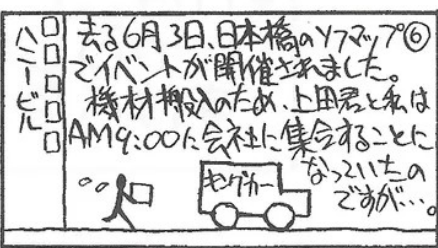 ハニービル
去る6月3日、日本橋のソフマップ⑥
でイベントが開催されました。
機材搬入のため、上田君と私は
AM9:00に会社に集合することに
なっていたの
ですが…。
キングカー